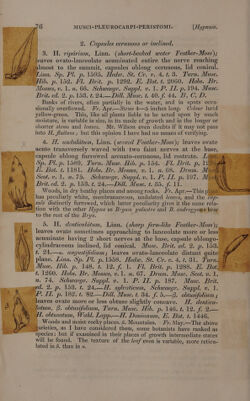 76 MUSCI-PLEUROCARPI-PERISTOMI. [Hypnum.
2. Capsules cernuous or inclined.
3. H. ripárium, Linn. (short-beaked water Feather-Moss);
leaves ovato-lanceolate acuminated entire the nerve reaching
almost to the summit, capsules oblong cernuous, lid conical.
Linn. Sp. Pl. p. 1595. Hedw. St. Cr. v. 4. t. 3. Turn. Musc.
Hib. p. 152. Fl. Brit. p. 1292. E. Bot. t. 2060. Hobs. Br.
Mosses, v. 1. n. 66. Schwaegr. Suppl. v. 1. P. II. p. 194. Musc.
Brit. ed. 2. p. 153. t. 24.—Dill. Musc. t. 40, f. 44, C, D.
Banks of rivers, often partially in the water, and in spots occa-
sionally overflowed. Fr. Apr.—Stem 4—5 inches long. Colour lurid
yellow-green. This, like all plants liable to be acted upon by much
moisture, is variable in size, in its mode of growth and in the longer or
shorter stems and leaves. Mr. Wilson even doubts if it may not pass
into H. fluitans; but this opinion I have had no means of verifying.
4. H. undulátum, Linn. (waved Feather-Moss); leaves ovate
acute transversely waved with two faint nerves at the base,
capsule oblong furrowed arcuato-cernuous, lid rostrate. Linn.
Sp. Pl. p. 1589. Turn. Musc. Hib. p. 154. Fl. Brit. p.
E. Bot. t. 1181. Hobs. Br. Mosses, v. 1. n. 68. Drum. M
Scot. v. 1. n. 75. Schwaegr. Suppl. v. 1. P. II. p. 197. Mus
Brit. ed. 2. p. 153. t. 24.—Dill. Musc. t. 36. f. 11.
Woods, in dry heathy places and among rocks. Fr. Apr.—This pl
has peculiarly white, membranaceous, undulated leaves, and the cap-
sule is distinctly furrowed, which latter peculiarity gives it the same rela-
tion with the other Hypna as Bryum palustre and B. androgynum
to the rest of the Brya.
5. H. denticulátum, Linn. (sharp fern-like Feather-Moss);
leaves ovate sometimes approaching to lanceolate more or less
acuminate having 2 short nerves at the base, capsule oblongo-
cylindraceous inclined, lid conical. Musc. Brit. ed. 2. p. 153.
t. 24.—α. angustifolium; leaves ovate-lanceolate distant quite
plane. Linn. Sp. Pl. p. 1588. Hedw. St. Cr. v. 4. t. 31. Turn.
Musc. Hib. p. 148. t. 12. f. 1. Fl. Brit. p. 1288. E. Bot.
t. 1260. Hobs. Br. Mosses, v. 1. n. 67. Drum. Musc. Scot. v. 1.
n. 74. Schwaegr. Suppl. v. 1. P. II. p. 187. Musc. Brit.
ed. 2. p. 153. t. 24.—H. sylvaticum, Schwaegr. Suppl. v. 1.
P. II. p. 182. t. 82.—Dill. Musc. t. 34. f. 5.—β. obtusifolium;
leaves ovate more or less obtuse slightly concave. H. dentico-
latum. β. obtusifolium, Turn. Musc. Hib. p. 146. t. 12. f. 2.—
H. obtusatum, Wahl. Lapp.—H. Donianum, E. Bot. t. 1446.
Woods and moist rocky places. β. Mountains. Fr. May.—The above
varieties, as I have considered them, some botanists have ranked as
species: but if examined in their places of growth intermediate states
will be found. The texture of the leaf even is variable, more reticu-
lated in β. than in α.